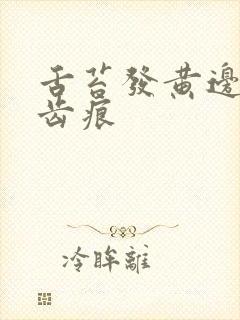 舌苔發黄邊
齿痕
冷眸離